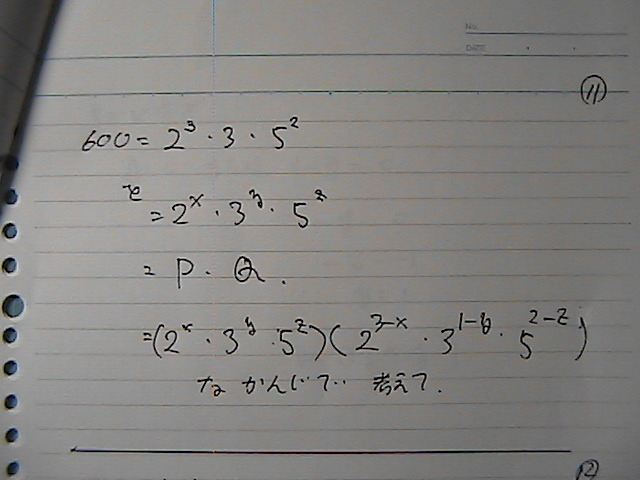 No.
DATE
⑪
600 = 2³・3・5²
で = 2ˣ・3ʸ・5ᶻ
= P・Q.
= (2ˣ・3ʸ・5ᶻ)(2³⁻ˣ・3¹⁻ʸ・5²⁻ᶻ)
な かんじで‥ 考えて.
⑫